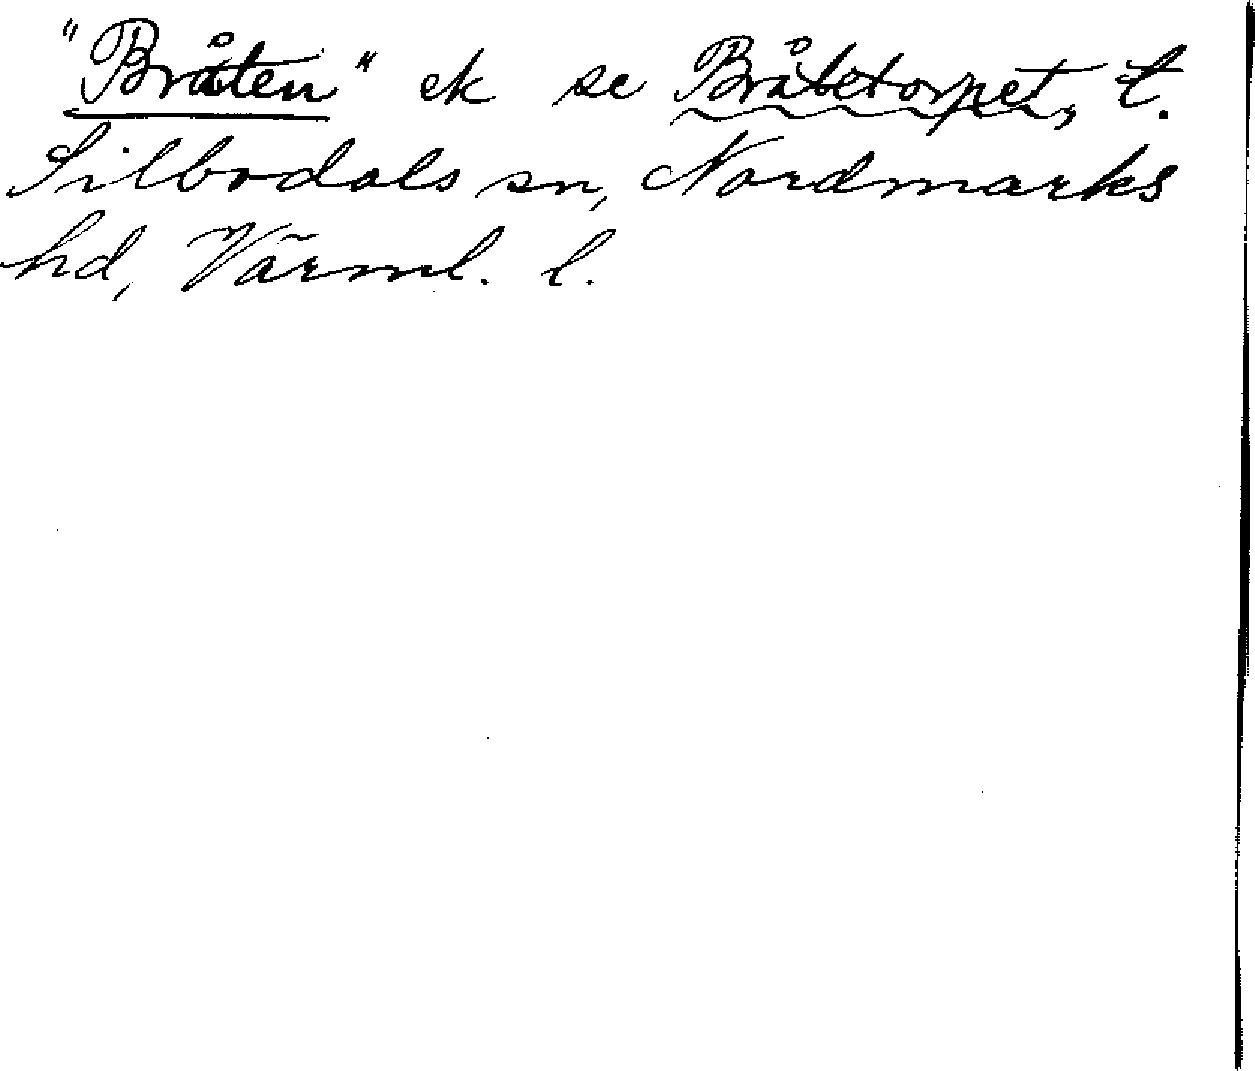 "Bråten" ek se Bråtetorpet, t.
Silbodals sn, Nordmarks
hd, Värml. l.